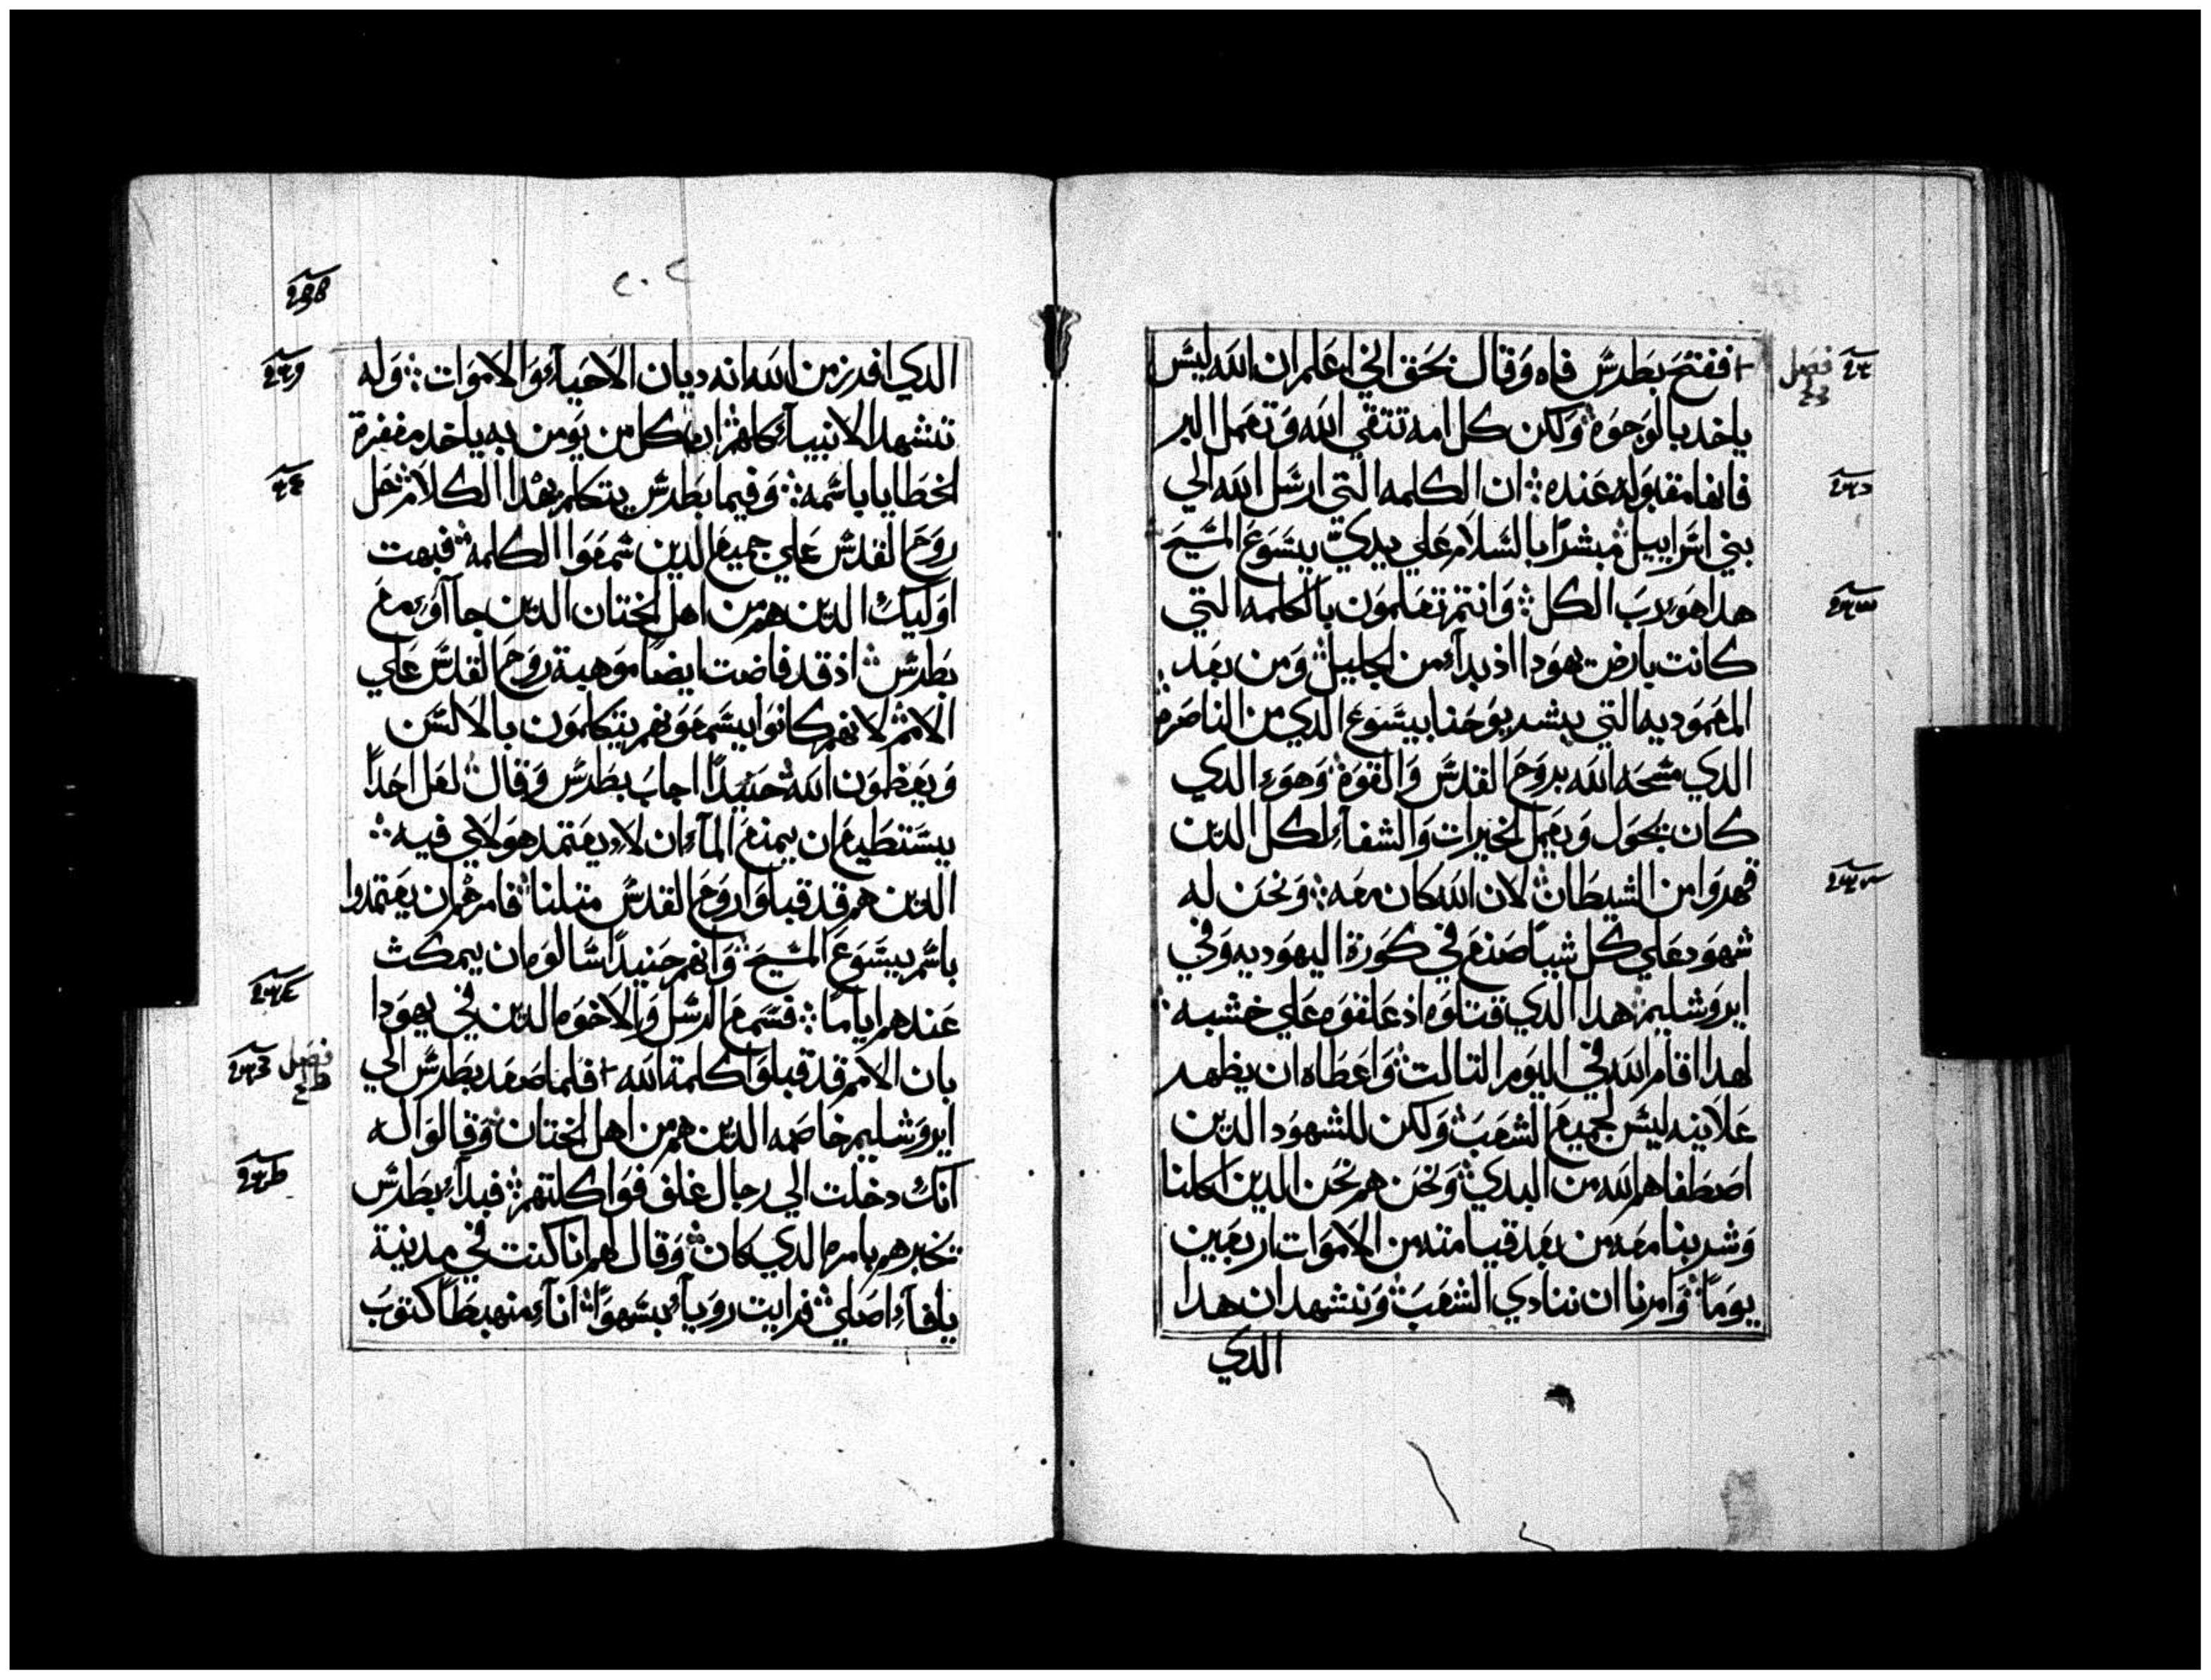 + ففتح بطرس فاه وقال بحق اني اعلم ان الله ليس
ياخد بالوجوه ولكن كل امه تتقي الله وتعمل البر
فانها مقبوله عنده ان الكلمه التي ارسل الله الي
بني اسراييل مبشرًا بالسلام علي يدي يسوع المسيح
هدا هو رب الكل وانتم تعلمون بالكلمه التي
كانت بارض يهودا اذ بدآء من الجليل ومن بعد
المعموديه التي يبشر يوحنا بيسوع الدي من الناصره
الدي مسحه الله بروح القدس والقوة وهو الدي
كان يجول ويعمل الخيرات والشفآء لكل الدين
قهروا من الشيطان لان الله كان معه ونحن له
شهود علي كل شيًا صنع في كورة اليهوديه وفي
ايروشليم هدا الدي قتلوه اذ علقوه علي خشبه
لهدا اقام الله في اليوم التالت واعطاه ان يظهر
علانيه ليس لجميع الشعب ولكن للشهود الدين
اصطفاهم الله من البدي ونحن هم نحن الدين اكلنا
وشربنا معه من بعد قيامته من الاموات اربعين
يومًا وامرنا ان ننادي الشعب ونشهد ان هدا
الدي
فصل
الدي افرز من الله انه ديان الاحيآء والاموات وله
تشهد الانبيآء كلهم ان كل من يومن به ياخد مغفرة
الخطايا باسمه وفيما بطرس يتكلم بهدا الكلام حل
روح القدس علي جميع الدين سمعوا الكلمه فبهت
اوليك الدين هم من اهل الختان الدين جاآوا مع
بطرس اذ قد فاضت ايضًا موهبة روح القدس علي
الامم لانهم كانوا يسمعونهم يتكلمون بالالسن
ويعظمون الله حنيدًا اجاب بطرس وقال لعل احدًا
يستطيع ان يمنع المآء ان لا يعتمد هولاي فيه
الدين هم قد قبلوا روح القدس متلنا فامرهم ان يعتمدوا
باسم يسوع المسيح وانهم حنيدًا سالوه ان يمكث
عندهم ايامًا فسمع الرسل والاخوه الدين في يهودا
بان الامم قد قبلوا كلمة الله + فلما صعد بطرس الي
ايروشليم خاصمه الدين هم من اهل الختان وقالوا له
انك دخلت الي رجال غلف فواكلتهم فبدآء بطرس
يخبرهم بامره الدي كان وقال لهم انا كنت في مدينة
يافآء اصلي فرايت رويآء بسهوًا انآء منهبطًا كتوب
فصل